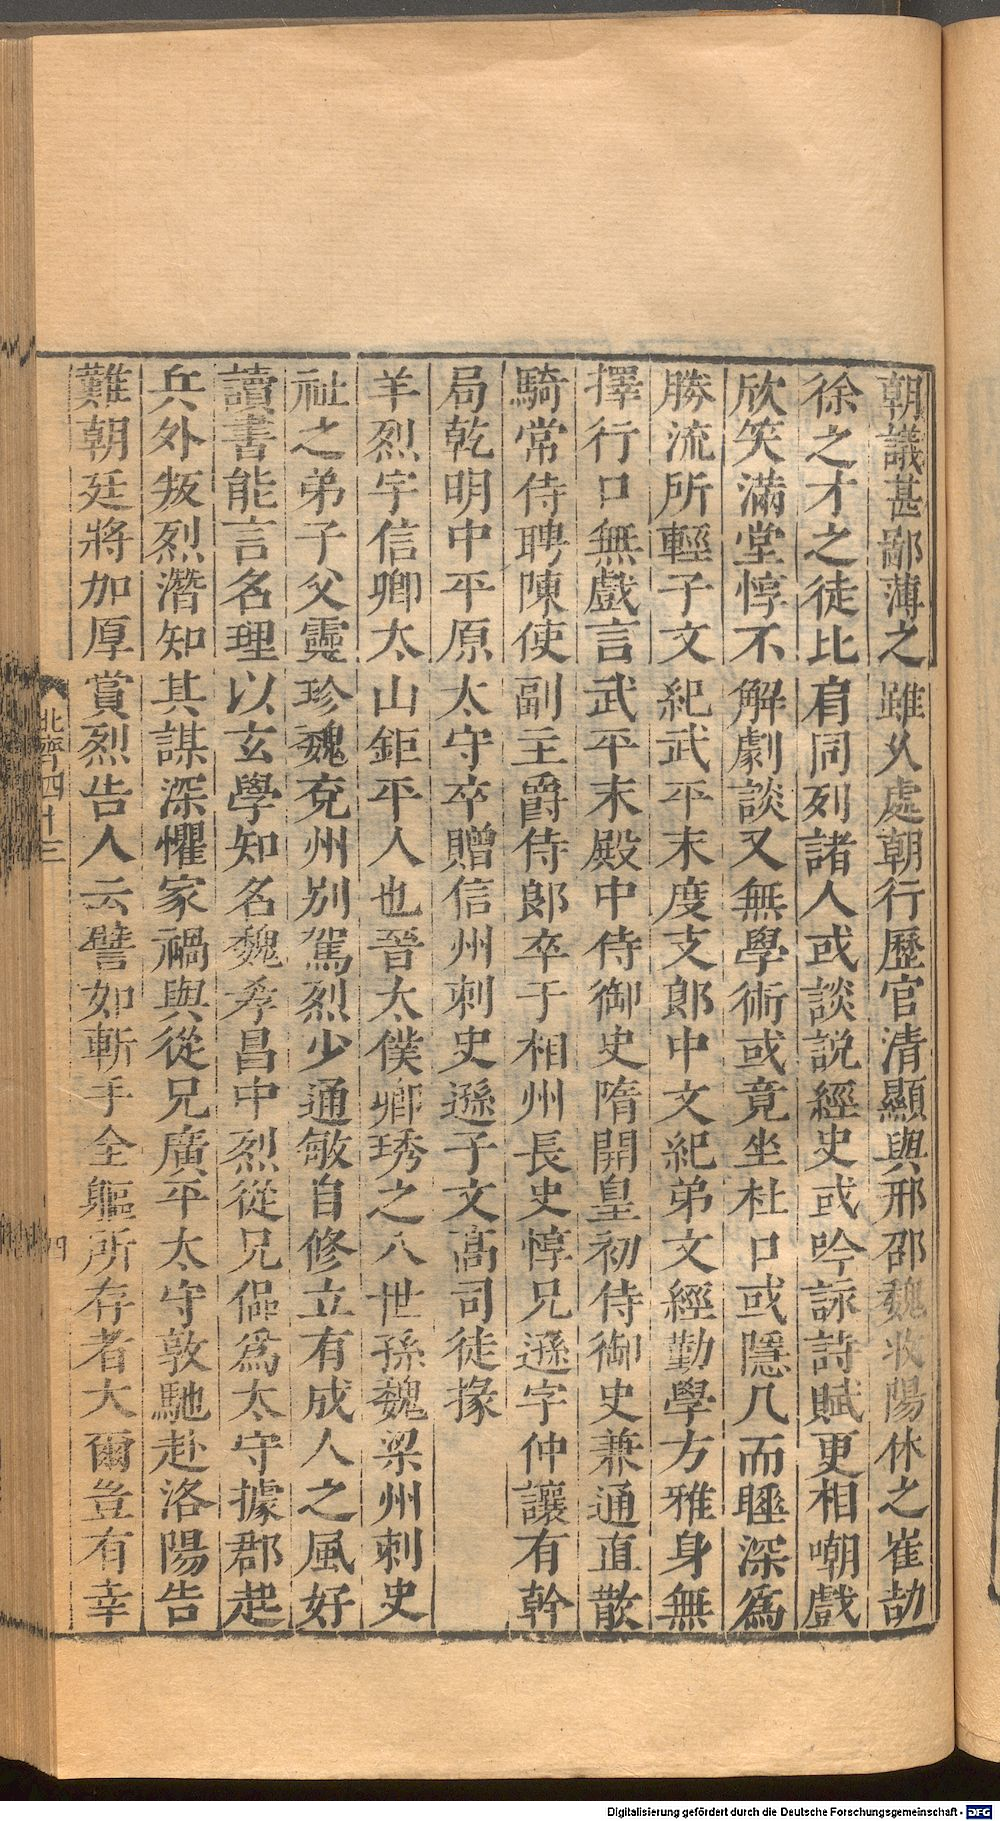 朝議甚鄙薄之雖乆處朝行歷官清顯與邢邵魏收陽休之崔劼
徐之才之徒比肩同列諸人或談説經史或吟詠詩賦更相嘲戲
欣笑滿堂惇不解劇談又無學術或竟坐杜口或隱几而睡深爲
勝流所輕子文紀武平末度支郎中文紀弟文經勤學方雅身無
擇行口無戲言武平末殿中侍御史隋開皇初侍御史兼通直散
騎常侍聘陳使副主爵侍郎卒于相州長史惇兄遜字仲讓有幹
局乾明中平原太守卒贈信州刺史遜子文高司徒掾
羊烈字信卿太山鉅平人也晉太僕卿琇之八世孫魏梁州刺史
祉之弟子父靈珍魏兗州別駕烈少通敏自修立有成人之風好
讀書能言名理以玄學知名魏孝昌中烈從兄偘爲太守據郡起
兵外叛烈潛知其謀深懼家禍與從兄廣平太守敦馳赴洛陽告
難朝廷將加厚賞烈告人云譬如斬手全軀所存者大爾豈有幸
北齊四十三
四
Digitalisierung gefördert durch die Deutsche Forschungsgemeinschaft - DFG